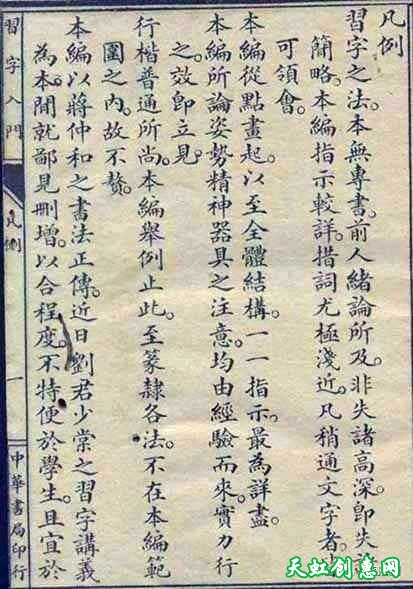 凡例
習字之法。本無專書。前人緒論所及。非失諸高深。卽失
簡略。本編指示較詳。措詞尤極淺近。凡稍通文字者。
可領會。
本編從點畫起。以至全體結構。一一指示。最為詳盡。
本編所論姿勢精神器具之注意。均由經驗而來。實力行
之。效卽立見。
行楷普通所尚。本編舉例止此。至篆隸各法。不在本編範
圍之內。故不贅。
本編以蔣仲和之書法正傳。近日劉君少棠之習字講義
為本。間就鄙見刪增。以合程度。不特便於學生。且宜於
習字入門
凡例
一
中華書局印行
天虹创意网